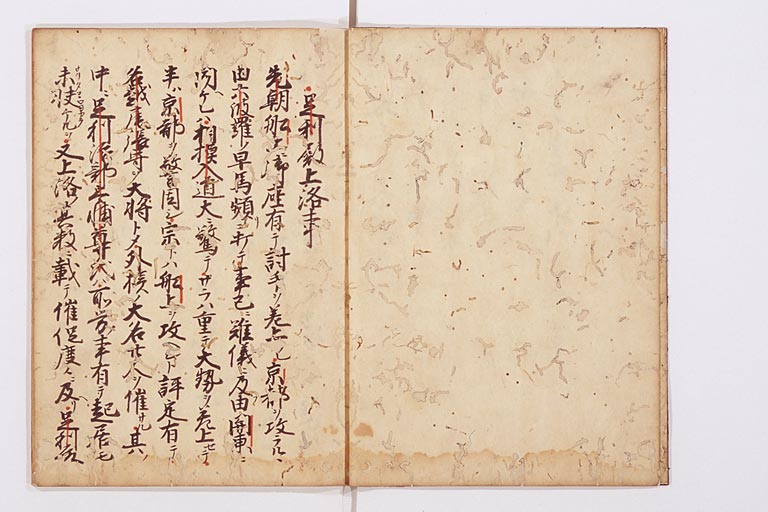 足利殿上洛事
先朝船上ニ御座有テ討手ヲ差上、京都ヲ攻ラルヽ
由六波羅ノ早馬頻ニ打テ事已ニ難儀ニ及由関東ニ
聞ヘケレハ相模入道大ニ驚テサラハ重テ大勢ヲ差上セテ
半ハ京都ヲ警固シ宗トハ船上ヲ攻ヘシト評定有テ
名越尾張守ヲ大将トメ外様ノ大名廿人ヲ催サル其
中ニ足利治部大輔尊氏ハ所労事有テ起居モ
未快ケルヲ又上洛ノ其数ニ載テ催促度々ニ及リ足利殿